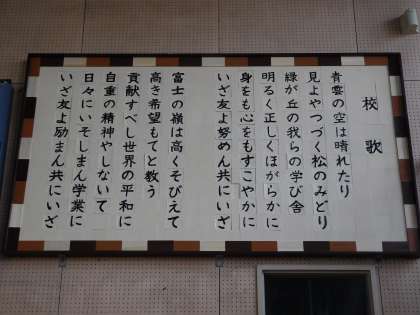 校歌
青雲の空は晴れたり
見よやつづく松のみどり
緑が丘の我らの学び舎
明るく正しくほがらかに
身をも心をもすこやかに
いざ友よ努めん共にいざ
富士の嶺は高くそびえて
高き希望もてと教う
貢献すべし世界の平和に
自重の精神やしないて
日々にいそしまん学業に
いざ友よ励まん共にいざ